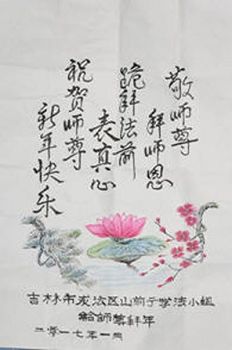 敬师尊
拜师恩
跪拜法前
表真心
祝贺师尊
新年快乐
吉林市龙潭区山前子学法小组
给师尊拜年
二零一七年一月